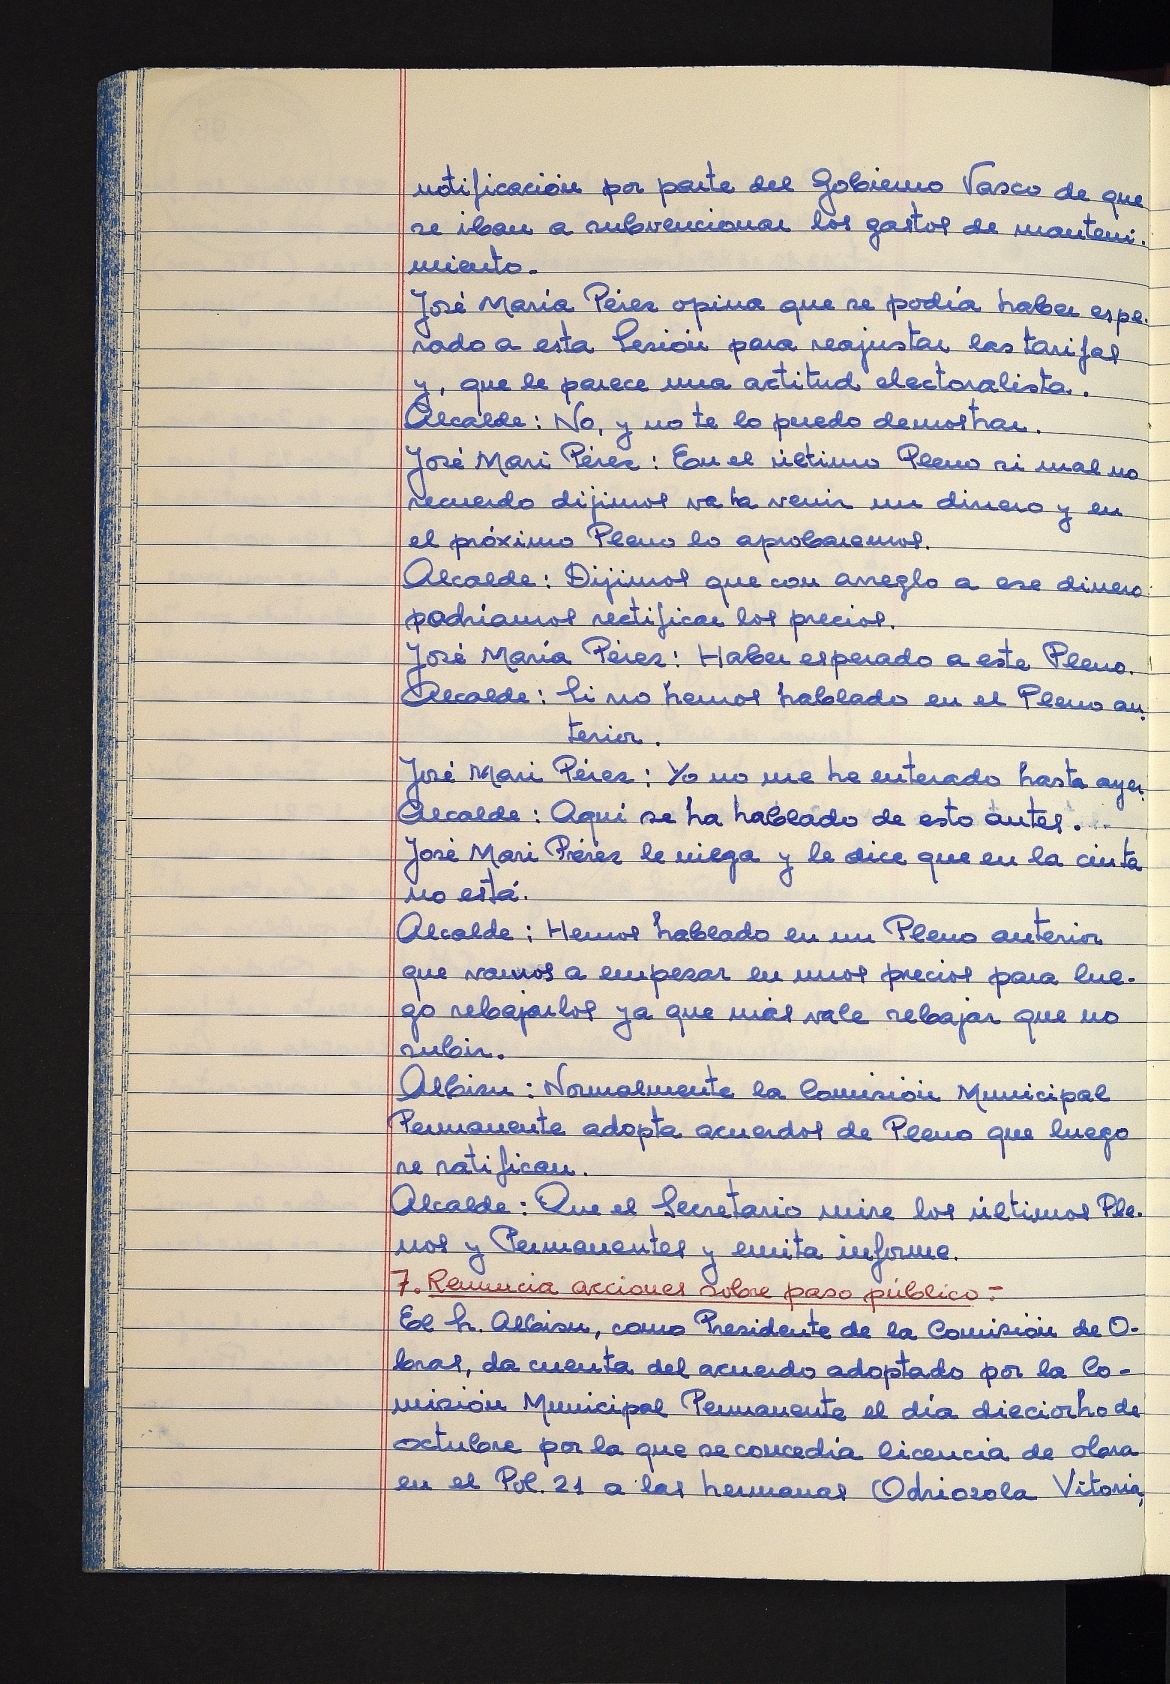 notificación por parte del Gobierno Vasco de que
se iban a subvencionar los gastos de manteni-
miento.-
José María Pérez opina que se podía haber espe-
rado a esta Sesión para reajustar las tarifas
y, que le parece una actitud electoralista.
Alcalde: No, y no te lo puedo demostrar.
José Mari Pérez: En el último Pleno si mal no
recuerdo dijimos va ha venir un dinero y en
el próximo Pleno lo aprobaremos.
Alcalde: Dijimos que con arreglo a ese dinero
podríamos rectificar los precios.
José María Pérez: Haber esperado a este Pleno.
Alcalde: Si no hemos hablado en el Pleno an-
terior.
José Mari Pérez: Yo no me he enterado hasta ayer.
Alcalde: Aquí se ha hablado de esto antes.
José Mari Pérez le niega y le dice que en la cinta
no está.
Alcalde: Hemos hablado en un Pleno anterior
que vamos a empezar en unos precios para lue-
go rebajarlos ya que más vale rebajar que no
subir.
Albisu: Normalmente la Comisión Municipal
Permanente adopta acuerdos de Pleno que luego
se ratifican.
Alcalde: Que el Secretario mire los últimos Ple-
nos y Permanentes y emita informe.
7. Renuncia acciones sobre paso público.-
El Sr. Albisu, como Presidente de la Comisión de O-
bras, da cuenta del acuerdo adoptado por la Co-
misión Municipal Permanente el día dieciocho de
octubre por la que se concedía licencia de obra
en el Pol. 21 a las hermanas Odriozola Vitoria,